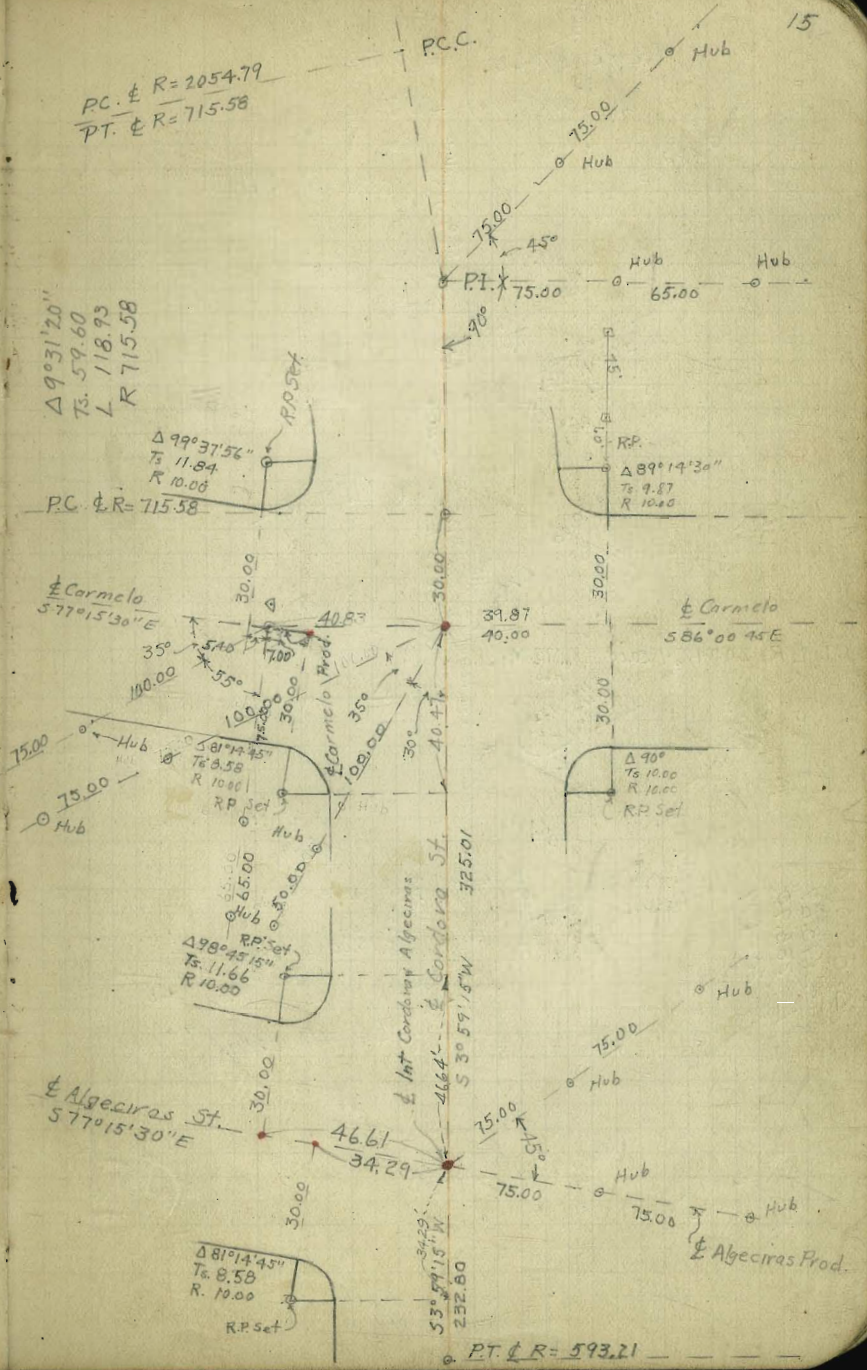 15
P.C.C.
Hub
P.C. ₵ R= 2054.79
P.T. ₵ R= 715.58
75.00
Hub
75.00
45°
P.I.
75.00
Hub
65.00
Hub
90°
Δ 9°31'20"
Ts. 59.60
L 118.93
R 715.58
R.P. Set
Δ 99°37'56"
Ts 11.84
R 10.00
15'
R.P.
Δ 89°14'30"
Ts 9.87
R 10.00
P.C. ₵ R= 715.58
30.00
30.00
30.00
₵ Carmelo
S 77°15'30"E
40.83
39.87
40.00
₵ Carmelo
S 86°00'45E
35°
5.40
7.00
55°
100.00
30.00
₵ Carmelo Prod.
35°
30°
40.47
30.00
100.00
75.00
Hub
Δ 81°14'45"
Ts 8.58
R 10.00
R.P. Set
Δ 90°
Ts 10.00
R 10.00
R.P. Set
75.00
Hub
Hub
65.00
50.00
Hub
R.P. Set
Δ 98°45'15"
Ts. 11.66
R 10.00
₵ Int Cordova & Algeciras
₵ Cordova St.
325.01
S 3°59'15"W
46.64'
Hub
75.00
Hub
30.00
₵ Algeciras St.
S 77°15'30"E
46.61
34.29
75.00
45°
75.00
Hub
75.00
Hub
₵ Algeciras Prod.
30.00
34.29'
S 3°59'15"W
232.80
Δ 81°14'45"
Ts. 8.58
R. 10.00
R.P. Set
P.T. ₵ R= 593.21